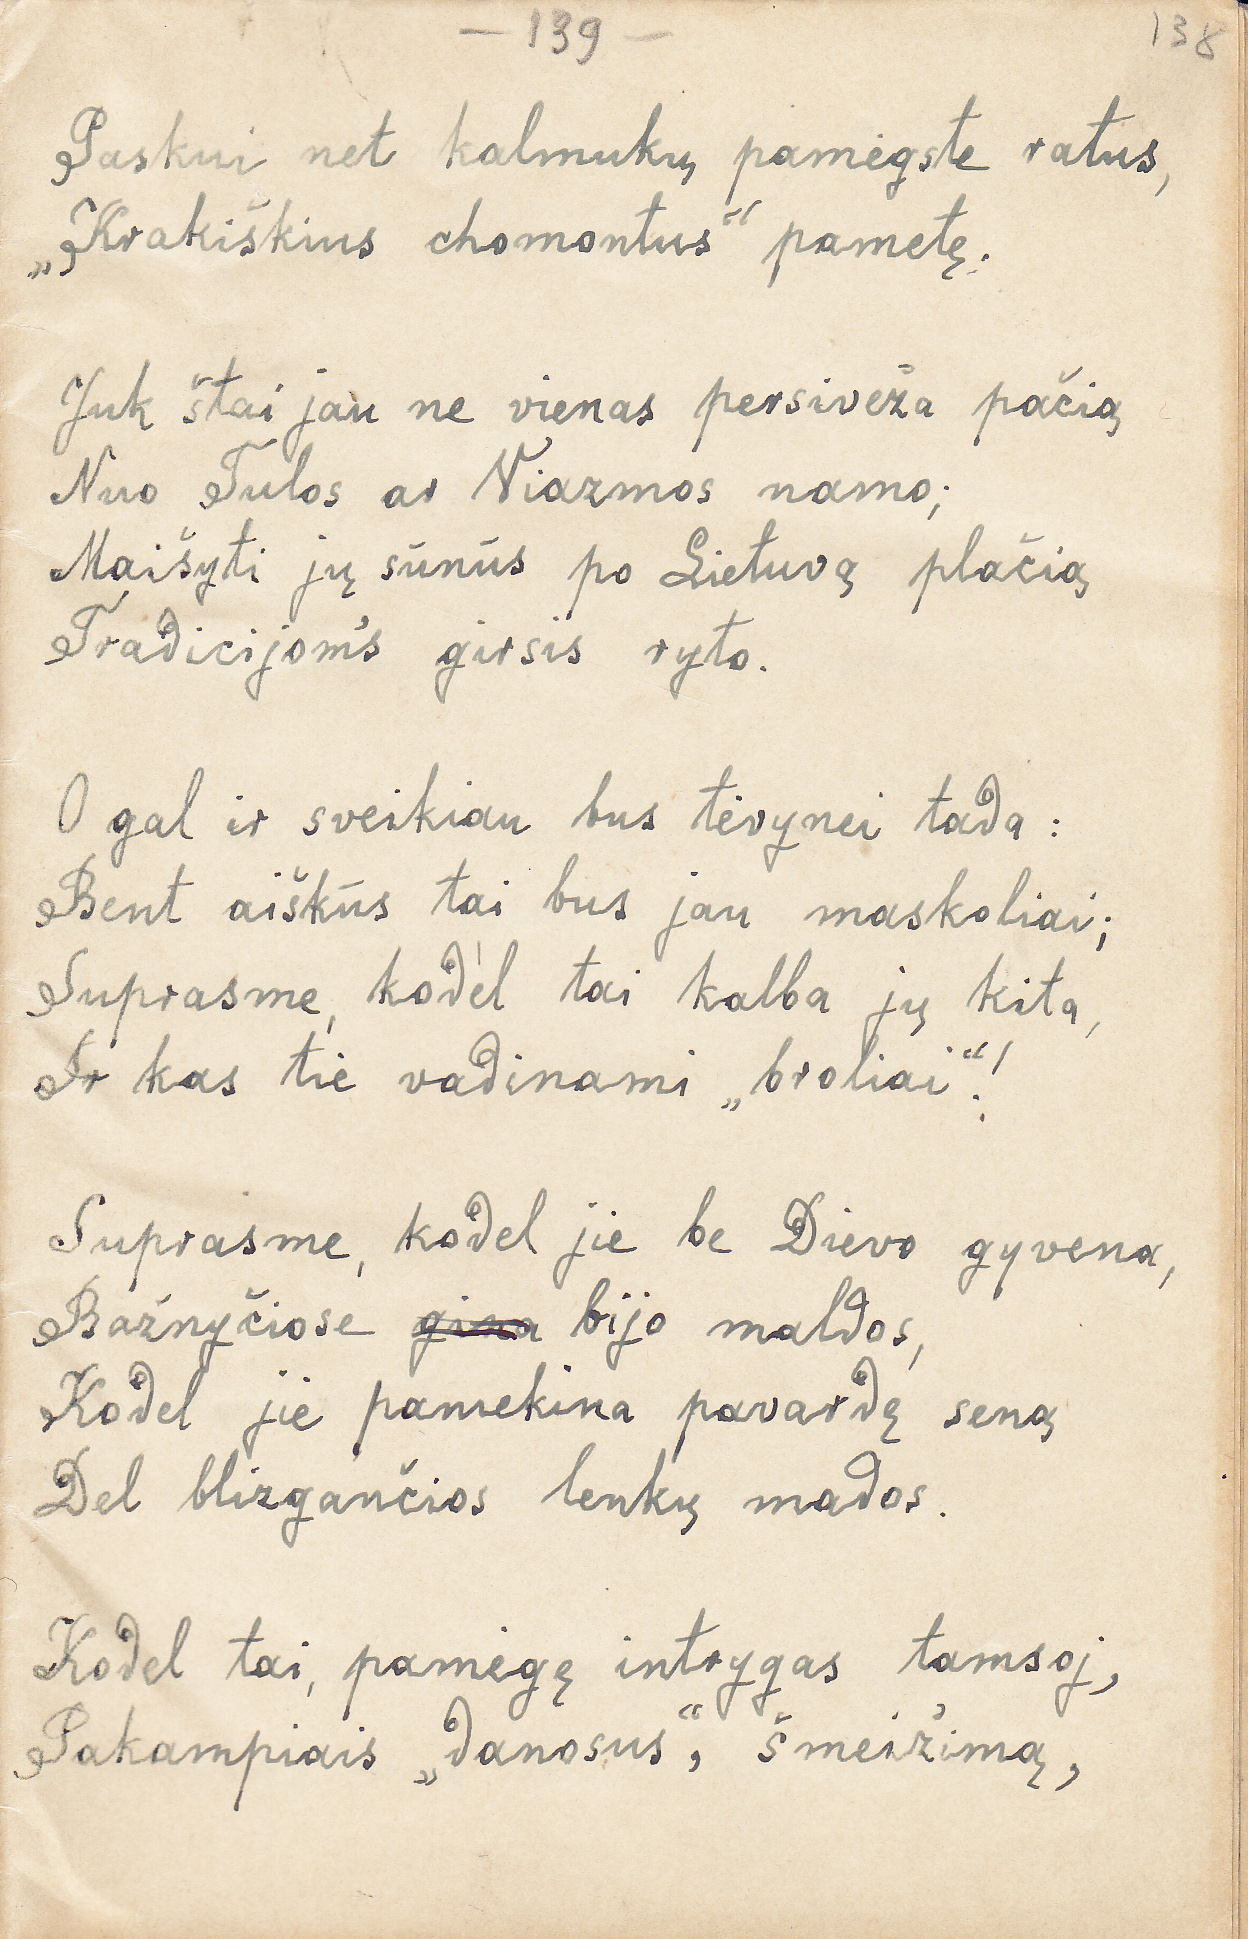 — 139 —
138
Paskui net kalmukų pamėgste ratus,
„Krakiškius chomontus“ pametę.
Juk štai jau ne vienas persiveža pačią
Nuo Tulos ar Viazmos namo;
Maišyti jų sūnūs po Lietuvą plačią
Tradicijom's girsis ryto.
O gal ir sveikiau bus tėvynei tada:
Bent aiškūs tai bus jau maskoliai;
Suprasme, kodėl tai kalba jų kita,
Ir kas tie vadinami „broliai“!
Suprasme, kodel jie be Dievo gyvena,
Bažnyčiose gina bijo maldos,
Kodel jie paniekina pavardę seną
Del blizgančios lenkų mados.
Kodel tai, pamėgę intrygas tamsoj,
Pakampiais „danosus“, šmeižimą,